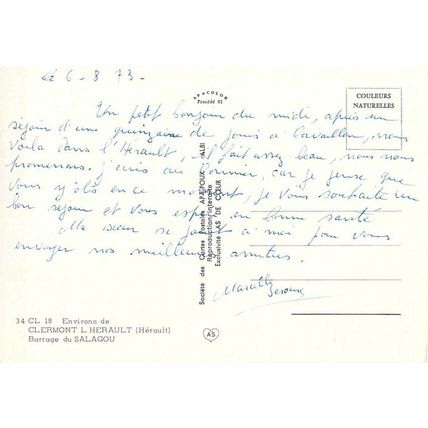 le 6-8 73-
Un petit bonjour du midi, après un
séjour d'une quinzaine de jours à Cavaillon, nous
voila dans l'Hérault, il fait assez beau, nous nous
promenons. j'écris au car je pense que
vous y êtes en ce moment, je vous souhaite un
bon séjour et vous espère en bonne santé
Ma sœur se joint à moi pour vous
envoyer nos meilleures amitiés.
Marcelle
APACOLOR
Procédé 81
COULEURS
NATURELLES
Société des Cartes Postales APA-POUX - ALBI
Reproduction interdite
Exclusivité AS DE CŒUR
AS
34 CL 18 - Environs de
CLERMONT L HERAULT (Hérault)
Barrage du SALAGOU